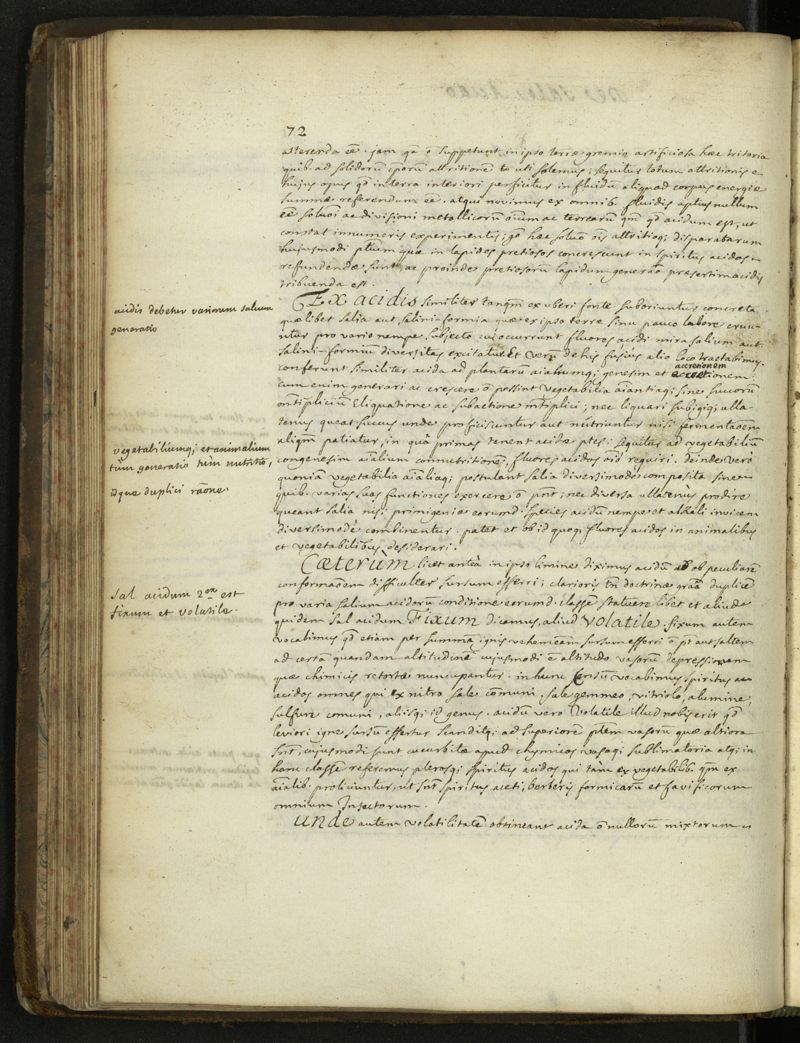 72
atterenda eē. jam qā ō suppetunt in ipso terræ gremio artificiosa hæc tritoria
quib. ad solidorū cporū attritionē to uti solemus; sequitur totum attritionis
hujus opus qđ in terra interiori perficitur in fluidū aliquod corpus energiæ
summæ referendum eē. atqui novimus ex omnib. fluidis aptius nullum
eē soluōi ac divisioni metallicorū oīum ac terrearū qm̄ qđ acidum est, ut
constat innumeris experimentis; qđ hæc soluō sīt attritioq; disparatarum
hujusmodi ptium quæ in lapides pretiosos concrescunt in spiritus acidos
refundendæ sunt, ac proinde pretiosorū lapidum generāo præsertim acidis
tribuenda est.
acidis debetur variorum salium
generatio
Ex acidis similiter tanqm̄ ex uberi fonte suboriuntur concreta
quælibet salia aut salini-formia quæ ex ipso terræ sinu pauco labore eruu-
ntur pro vario nempe subjecto cui occurrunt fluores acidi mira salium aut
salini-formiū diversitas excitatur. Et verū de his fusius alio loco tractabimus.
conferunt similiter acida ad plantarū aīaliumq; genesim et accretionem
cum enim generari ac crescere ō possint vegetabilia aīantiaq; sine succorū
omtipliciū eliquatione ac subactione mtiplici; nec liquari subigiq; ulla
tenus queat succus unde proficiscuntur aut nutriuntur nisi fermentaōem
aliqm̄ patiatur, in quâ primas tenent acidæ ptes: sequitur ad vegetabiliū
vegetabiliumq; et animalium
tùm generatio tùm nutritio,
idque duplici rāone
congenesim aīalium connutritionē, fluores acidos oīō requiri. deinde verò
quoniā vegetabilia aīaliaq; postulant salia diversimodè composita sine
quib. varias suas functiones exercere ō pōnt; nec diversa ullatenus prodire
queant salia nisi primigeniæ eorumd. species acidū nempe et alkali invicem
diversimodè combinentur. patet et ob id quoq; fluores acidos in animalibus
et vegetabilibus desiderari.
Cæterum licet anteà in ipso limine diximus acidū ob peculiarē
conformaōem difficulter sursum efferri; clarioris tn̄ doctrinæ grāâ duplicē
sal acidum 2ex est
fixum et volatile.
pro varia salium acidorū conditione eorumd. classē statuere libet et aliud
quidem sal acidum Fixum dicamus, aliud Volatile. fixum autem
vocabimus qđ etiam per summā ignis vehemeām sursum efferri ō pt aut saltem
ad certā quandam altitudinē cujusmodi ē altitudo vasorū depressiorum
quæ chimicis retortæ nuncupantur. in hunc sensū vocabimus spiritus
acidos omnes qui ex nitro sale cōmuni, sale gemmeo, vitriolo, alumine,
sulfure comuni, aliisq; id genus. acidū vero Volatile illud nobis erit qđ
leviori igne sursū effertur scanditq; ad superiorē ptem vasorū quæ altiora
snt, cujusmodi sunt cucurbitæ apud chymicos vasaq; sublimatoria atq; in
hanc classē referemus plerosq; spiritus acidos qui tàm ex vegetabilib. qm̄ ex
aīalib. proliciuntur, ut snt spiritus aceti, berberis formicarū et favificorum
omnium Insectorum.
Unde autem volatilitatē obtineant acida ōnullorū mixtorum